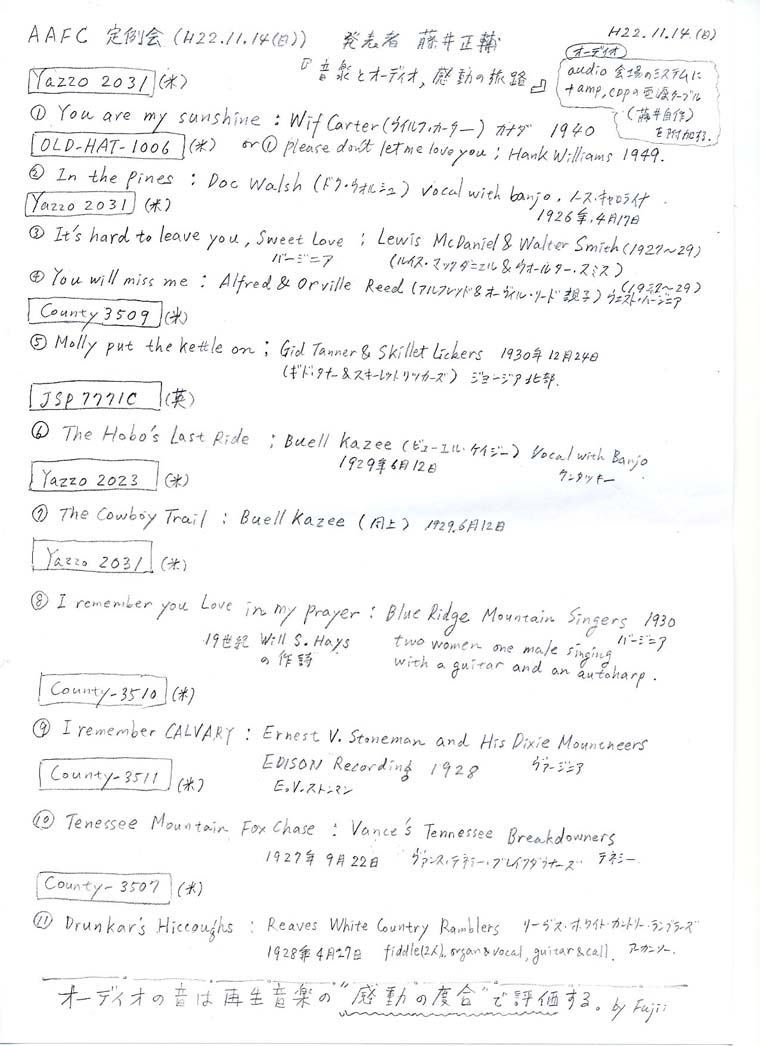 AAFC 定例会 (H22.11.14(日)) 発表者 藤井正輔
H22.11.14.(日)
『音楽とオーディオ,感動の旅路』
オーディオ
audio 会場のシステムに
+amp, CDPの電源ケーブル
(藤井自作)
を附加する.
Yazzo 2031 (米)
① You are my sunshine : Wilf Carter (ウイルフ・カーター) カナダ 1940
OLD-HAT-1006 (米) or ① please don't let me love you ; Hank Williams 1949.
② In the pines : Doc Walsh (ドク・ウォルシュ) vocal with banjo. ノース・キャロライナ
1926年.4月17日
Yazzo 2031 (米)
③ It's hard to leave you, Sweet Love ; Lewis McDaniel & Walter Smith (1927~29)
バージニア (ルイス・マックダニエル&ウォールター・スミス)
④ You will miss me : Alfred & Orville Reed (アルフレッド&オーヴィル・リード親子) ウェスト・バージニア
County 3509 (米)
⑤ Molly put the kettle on ; Gid Tanner & Skillet Lickers 1930年12月24日
(ギド・タナー&スキーレットリッカーズ) ジョージア北部.
JSP 7771C (英)
⑥ The Hobo's Last Ride ; Buell Kazee (ビューエル・ケイジー) Vocal with Banjo
1929年6月12日 ケンタッキー
Yazzo 2023 (米)
⑦ The Cowboy Trail : Buell Kazee (同上) 1929.6月12日
Yazzo 2031 (米)
⑧ I remember you Love in my prayer : Blue Ridge Mountain Singers 1930
バージニア
19世紀 Will S. Hays two women one male singing
の作詩 with a guitar and an autoharp.
County-3510 (米)
⑨ I remember CALVARY : Ernest V. Stoneman and His Dixie Mountneers
EDISON Recording 1928 ヴァージニア
County-3511 (米) E.V.ストンマン
⑩ Tenessee Mountain Fox Chase : Vance's Tennessee Breakdowners
1927年9月22日 ヴァンス・テネシー・ブレイクダウナーズ テネシー.
County-3507 (米)
⑪ Drunkar's Hiccoughs : Reaves White Country Ramblers リーヴス・ホワイト・カントリー・ランブラーズ
1928年4月27日 fiddle(2人), organ & vocal, guitar & call. アーカンソー.
オーディオの音は再生音楽の"感動の度合"で評価する。by Fujii